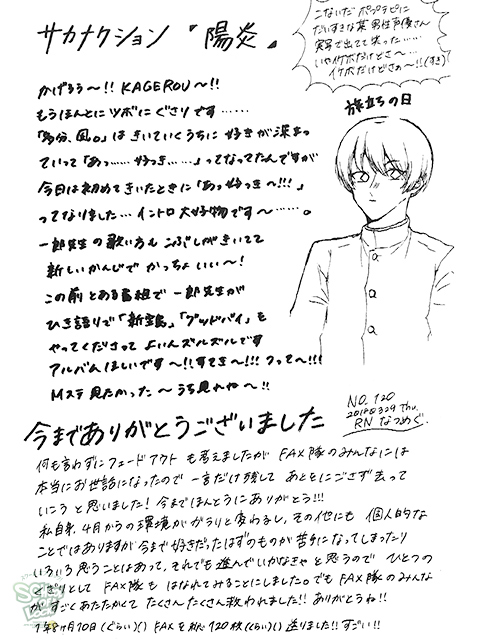 サカナクション 『陽炎』
こないだ ポプテピに
だいすきな某男性声優さん
実写で出てて 笑った……
いやイケボだけどさ〜…
イケボだけどさぁ〜!!(すき)
旅立ちの日
かげろう〜!! KAGEROU〜!!
もうほんとに ツボに ぐさり です……
「多分、風。」は きいていくうちに 好きが 深まっ
ていって「あっ……好っき……」ってなってたんですが
今日は 初めて きいたときに「あっ好っき〜!!!」
ってなりました… イントロ 大好物です〜……。
一郎先生の 歌い方も こぶしがきいてて
新しいかんじで かっちょいい〜!
この前 とある番組で 一郎先生が
ひき語りで「新宝島」「グッドバイ」も
やってくださって よいんズルズルです
アルバム ほしいです〜!!すてき〜!!!
Mステ 見たかった〜 うち見れね〜!!
NO.120
2018.03.29 Thu.
RN なつめぐ。
今までありがとうございました
何も言わずにフェードアウト も考えましたが FAX隊のみんなには
本当にお世話になったので 一言だけ残して あとをにごさず去って
いこう と思いました! 今までほんとうにありがとう!!!
私自身、4月からの環境が ガラリと変わるし、その他にも 個人的な
ことではありますが 今まで好きだったはずのものが 苦手になってしまったり
いろいろ思うことはあって、それでも進んでいかなきゃ と思うので ひとつの
くぎりとして FAX隊も はなれてみることにしました。でも FAX隊のみんな
が すごくあたたかくて たくさんたくさん救われました!! ありがとうね!!
1年8ヶ月10日(ぐらい)() FAXを 120枚(くらい)() 送りました!! すごい!!